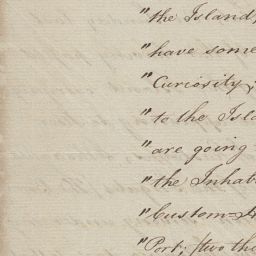 "the Island,
"have some
"Curiosity;
"to the Isl
"are going
"the Inhab
"Custom-H
"Port; (two th